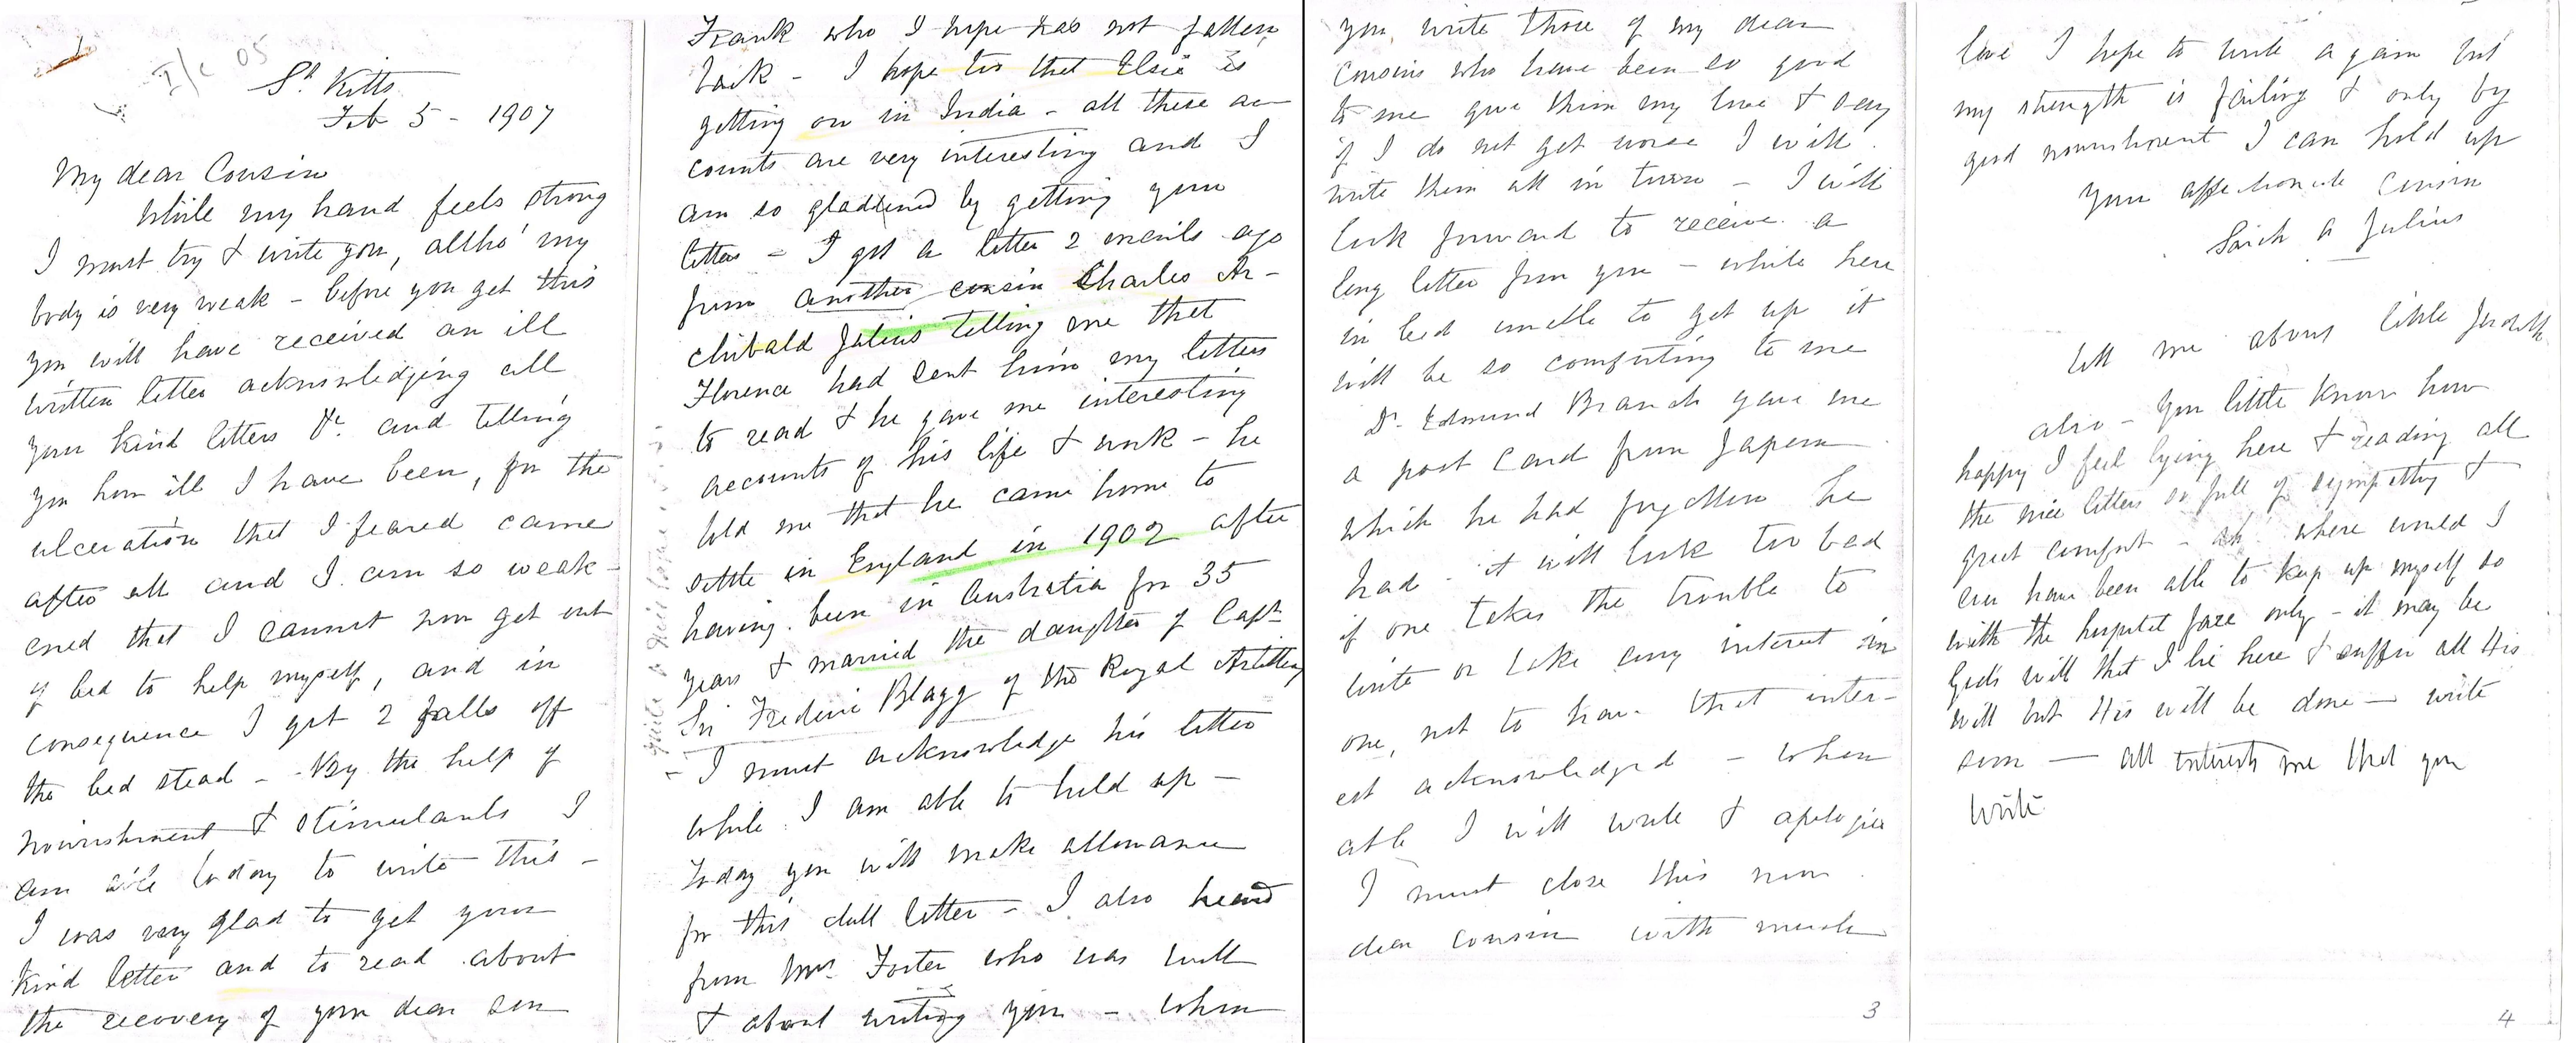 I/c 05
St. Kitts
Feb 5 - 1907
My dear Cousin
While my hand feels strong
I must try & write you, altho' my
body is very weak - before you get this
you will have received an ill
written letter acknowledging all
your kind letters &c. and telling
you how ill I have been, for the
ulceration that I feared came
after all and I am so weak-
ened that I cannot now get out
of bed to help myself, and in
consequence I got 2 falls off
the bed stead - By the help of
nourishment & stimulants I
am able today to write this -
I was very glad to get your
kind letter and to read about
the recovery of your dear son
Frank who I hope has not fallen
back - I hope too that Elsie is
getting on in India - all these ac
counts are very interesting and I
am so gladdened by getting your
letters - I got a letter 2 mails ago
from another cousin Charles Ar-
chibald Julius telling me that
Florence had sent him my letters
to read & he gave me interesting
accounts of his life & work - he
told me that he came home to
settle in England in 1902 after
having been in Australia for 35
years & married the daughter of Capt
Sir Frederic Blagg of the Royal Artillery
- I must acknowledge his letter
while I am able to hold up -
Today you will make allowance
for this dull letter - I also heard
from Mrs. Foster who was well
& about writing you - when
you, write those of my dear
cousins who have been so good
to me give them my love & say
if I do not get worse I will
write them all in turn - I will
look forward to receive a
long letter from you - while here
in bed unable to get up it
will be so comforting to me
Dr. Edmund Branch gave me
a post card from Japan
which he had forgotten he
had - it will look too bad
if one takes the trouble to
write or take any interest in
one, not to have that inter-
est acknowledged - when
able I will write & apologise
I must close this now.
dear cousin with much
3
love I hope to write again but
my strength is failing & only by
good nourishment I can hold up
Your affectionate Cousin
A Julius
tell me about little Judith
also - You little know how
happy I feel lying here & reading all
the nice letters so full of sympathy &
great comfort - ah where would I
ever have been able to keep up myself so
with the hospital fare only - it may be
God's will that I lie here & suffer all His
will but His will be done - write
soon - all interests me that you
write
4